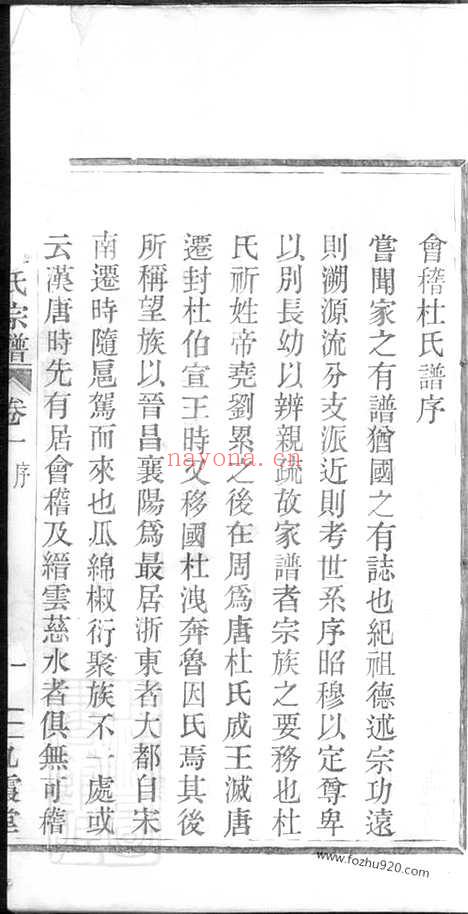 會稽杜氏譜序
嘗聞家之有譜猶國之有誌也紀祖德述宗功遠
則溯源流分支派近則考世系序昭穆以定尊卑
以別長幼以辨親疏故家譜者宗族之要務也杜
氏祈姓帝堯劉累之後在周爲唐杜氏成王滅唐
遷封杜伯宣王時又移國杜洩奔魯因氏焉其後
所稱望族以晉昌襄陽爲最居浙東者大都自宋
南遷時隨扈駕而來也瓜綿椒衍聚族不一處或
云漢唐時先有居會稽及縉雲慈水者俱無可稽
氏宗譜 卷一 序 一 霞堂
nayona.cn
www.fozhu920.com